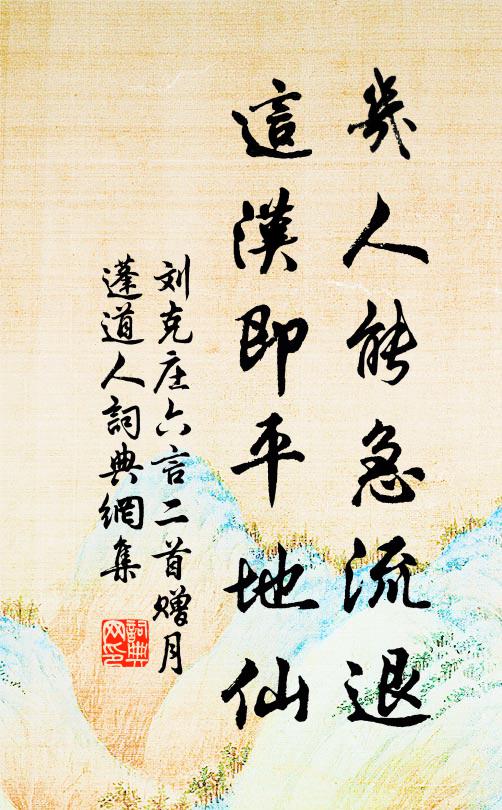 幾人能急流退
這漢即平地仙
刘克庄六言二首赠月
蓬道人詞典網集
詞典